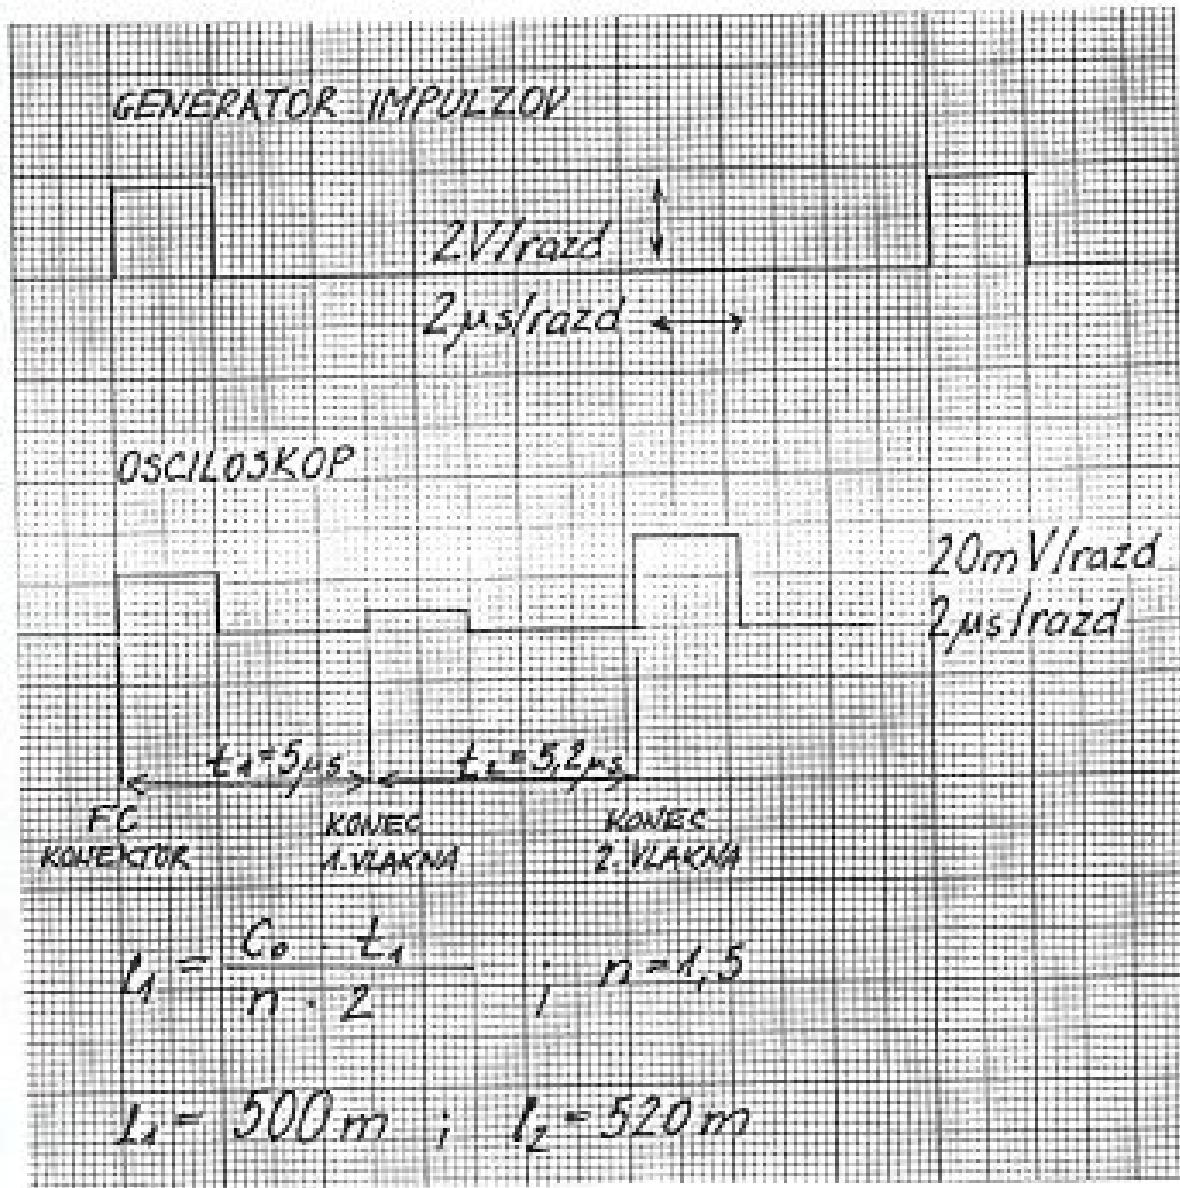 GENERATOR IMPULZOV
2V/razd
2μs/razd
OSCILOSKOP
20mV/razd
2μs/razd
t₁=5μs
t₂=5,2μs
FC
KONEKTOR
KONEC
1.VLAKNA
KONEC
2.VLAKNA
l₁ = C₀ · t₁ / n · 2 ; n=1,5
l₁ = 500m ; l₂ = 520m